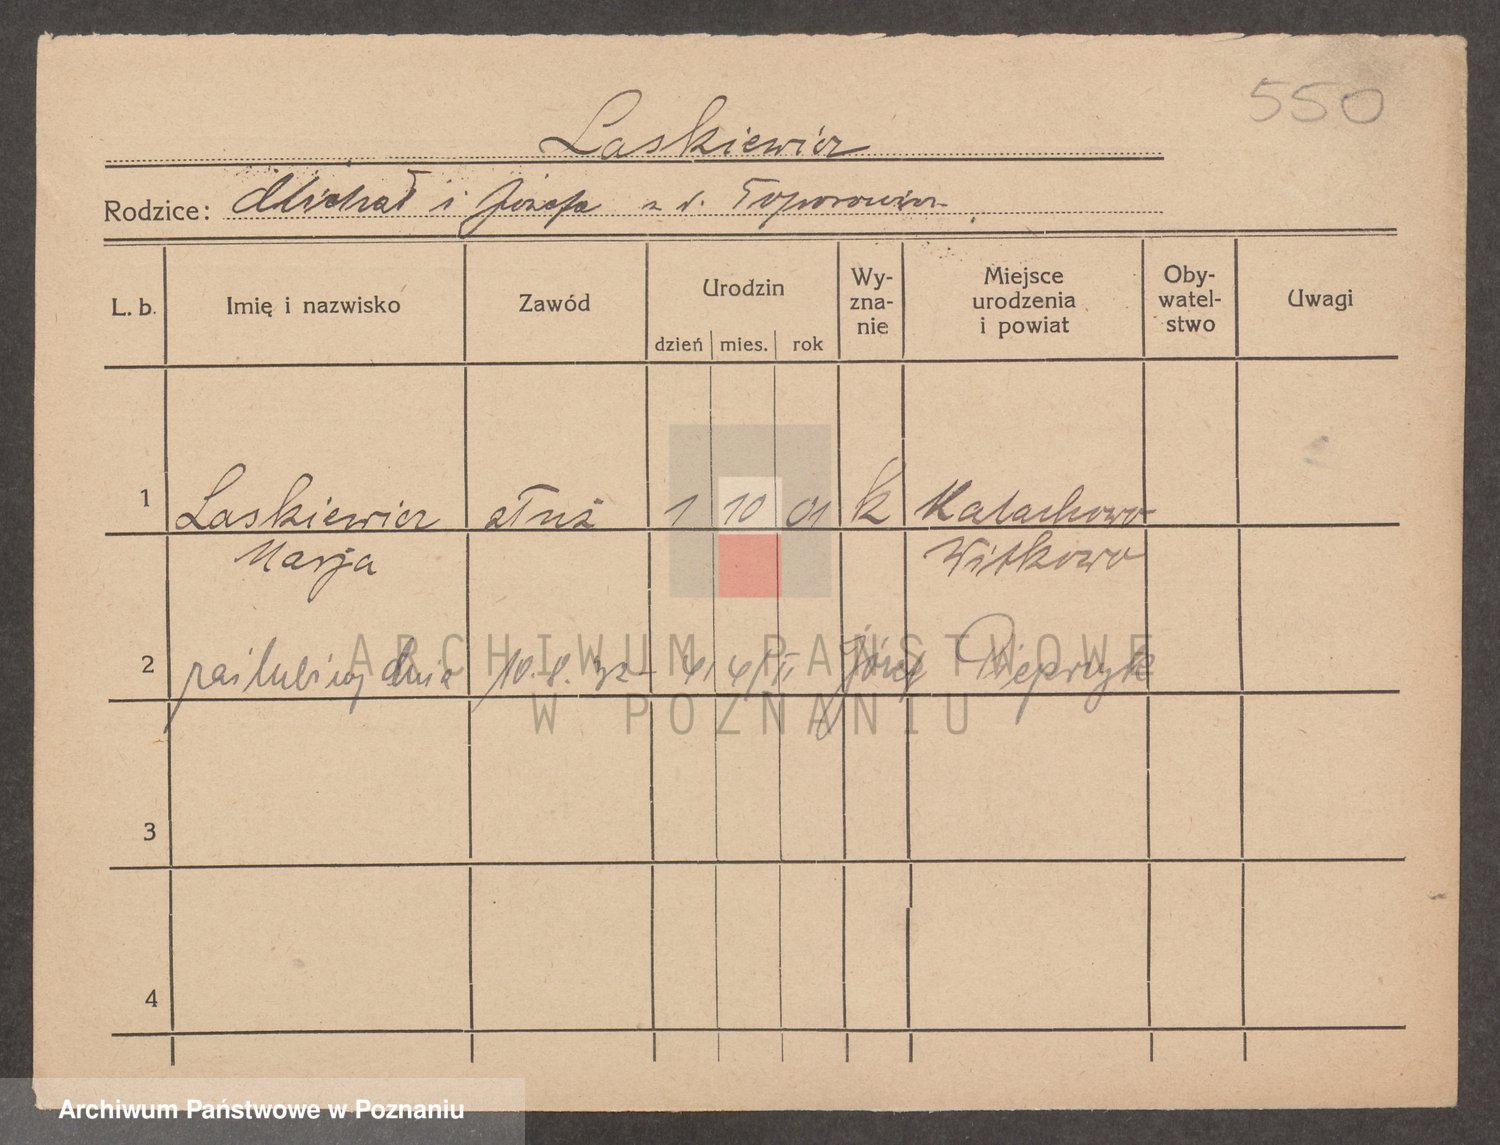 550
Laskiewicz
Rodzice: Michał i Józefa z d. Toporowicz
L. b. Imię i nazwisko Zawód Urodzin dzień mies. rok Wy-zna-nie Miejsce urodzenia i powiat Oby-watel-stwo Uwagi
1 Laskiewicz służ 1 10 01 k Kałachowo
Marja Witkowo
2 dnia 10.8.32 Józef Pieprzyk
ARCHIWUM PAŃSTWOWE
W POZNANIU
3
4
Archiwum Państwowe w Poznaniu